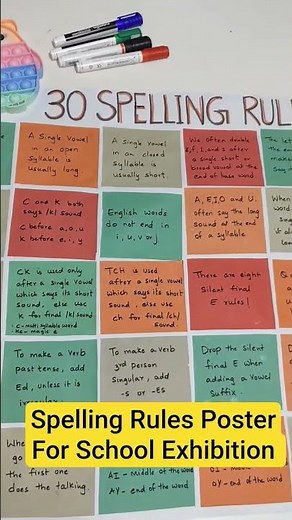 30 SPELLING
A Single Vowel
in an open
Syllable is
usually long.
A Single Vowel
in an closed
Syllable is
usually short.
We often double
after
a single short or
broad vowel at the
end of base word
C and K both
says /k/ sound
C before a, o, u
K before e, i, y
English words
do not end in
i, u, v or j
A, E, I, O and U.
often say the long
sound at the end
of a syllable
CK is used only
after a single vowel
which says its short
sound, else use
K for final /k/ sound.
TCH is used
after a single vowel
which says its short
sound, else use
ch for final /ch/
sound.
There are eight
Silent final
E rules!
To make a verb
past tense, add
Ed, unless it is
To make a verb
3rd person
Singular, add
-s or -Es
Drop the Silent
final E when
adding a Vowel
Suffix.
go
the first one
does the talking.
AI - Middle of the word
AY - end of the word
OY - end of the word
Spelling Rules Poster
For School Exhibition